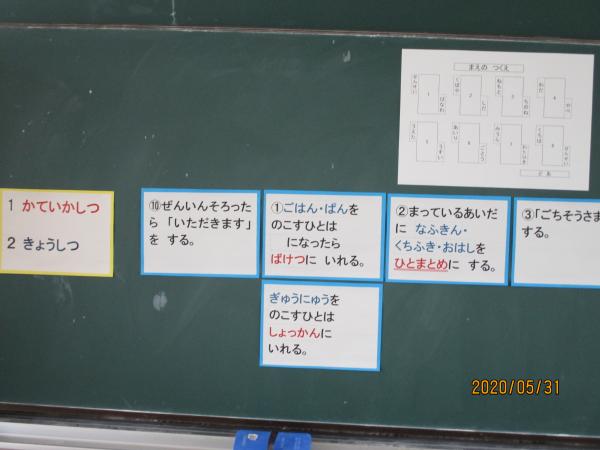 まえの つくえ
1
2
3
4
5
6
7
8
1 かていかしつ
2 きょうしつ
⑩ぜんいんそろった
ら 「いただきます」
を する。
①ごはん・ぱんを
のこすひとは
になったら
ばけつに いれる。
②まっているあいだ
に なふきん・
くちふき・おはしを
ひとまとめに する。
③「ごちそうさま
する。
ぎゅうにゅうを
のこすひとは
しょっかんに
いれる。
2020/05/31